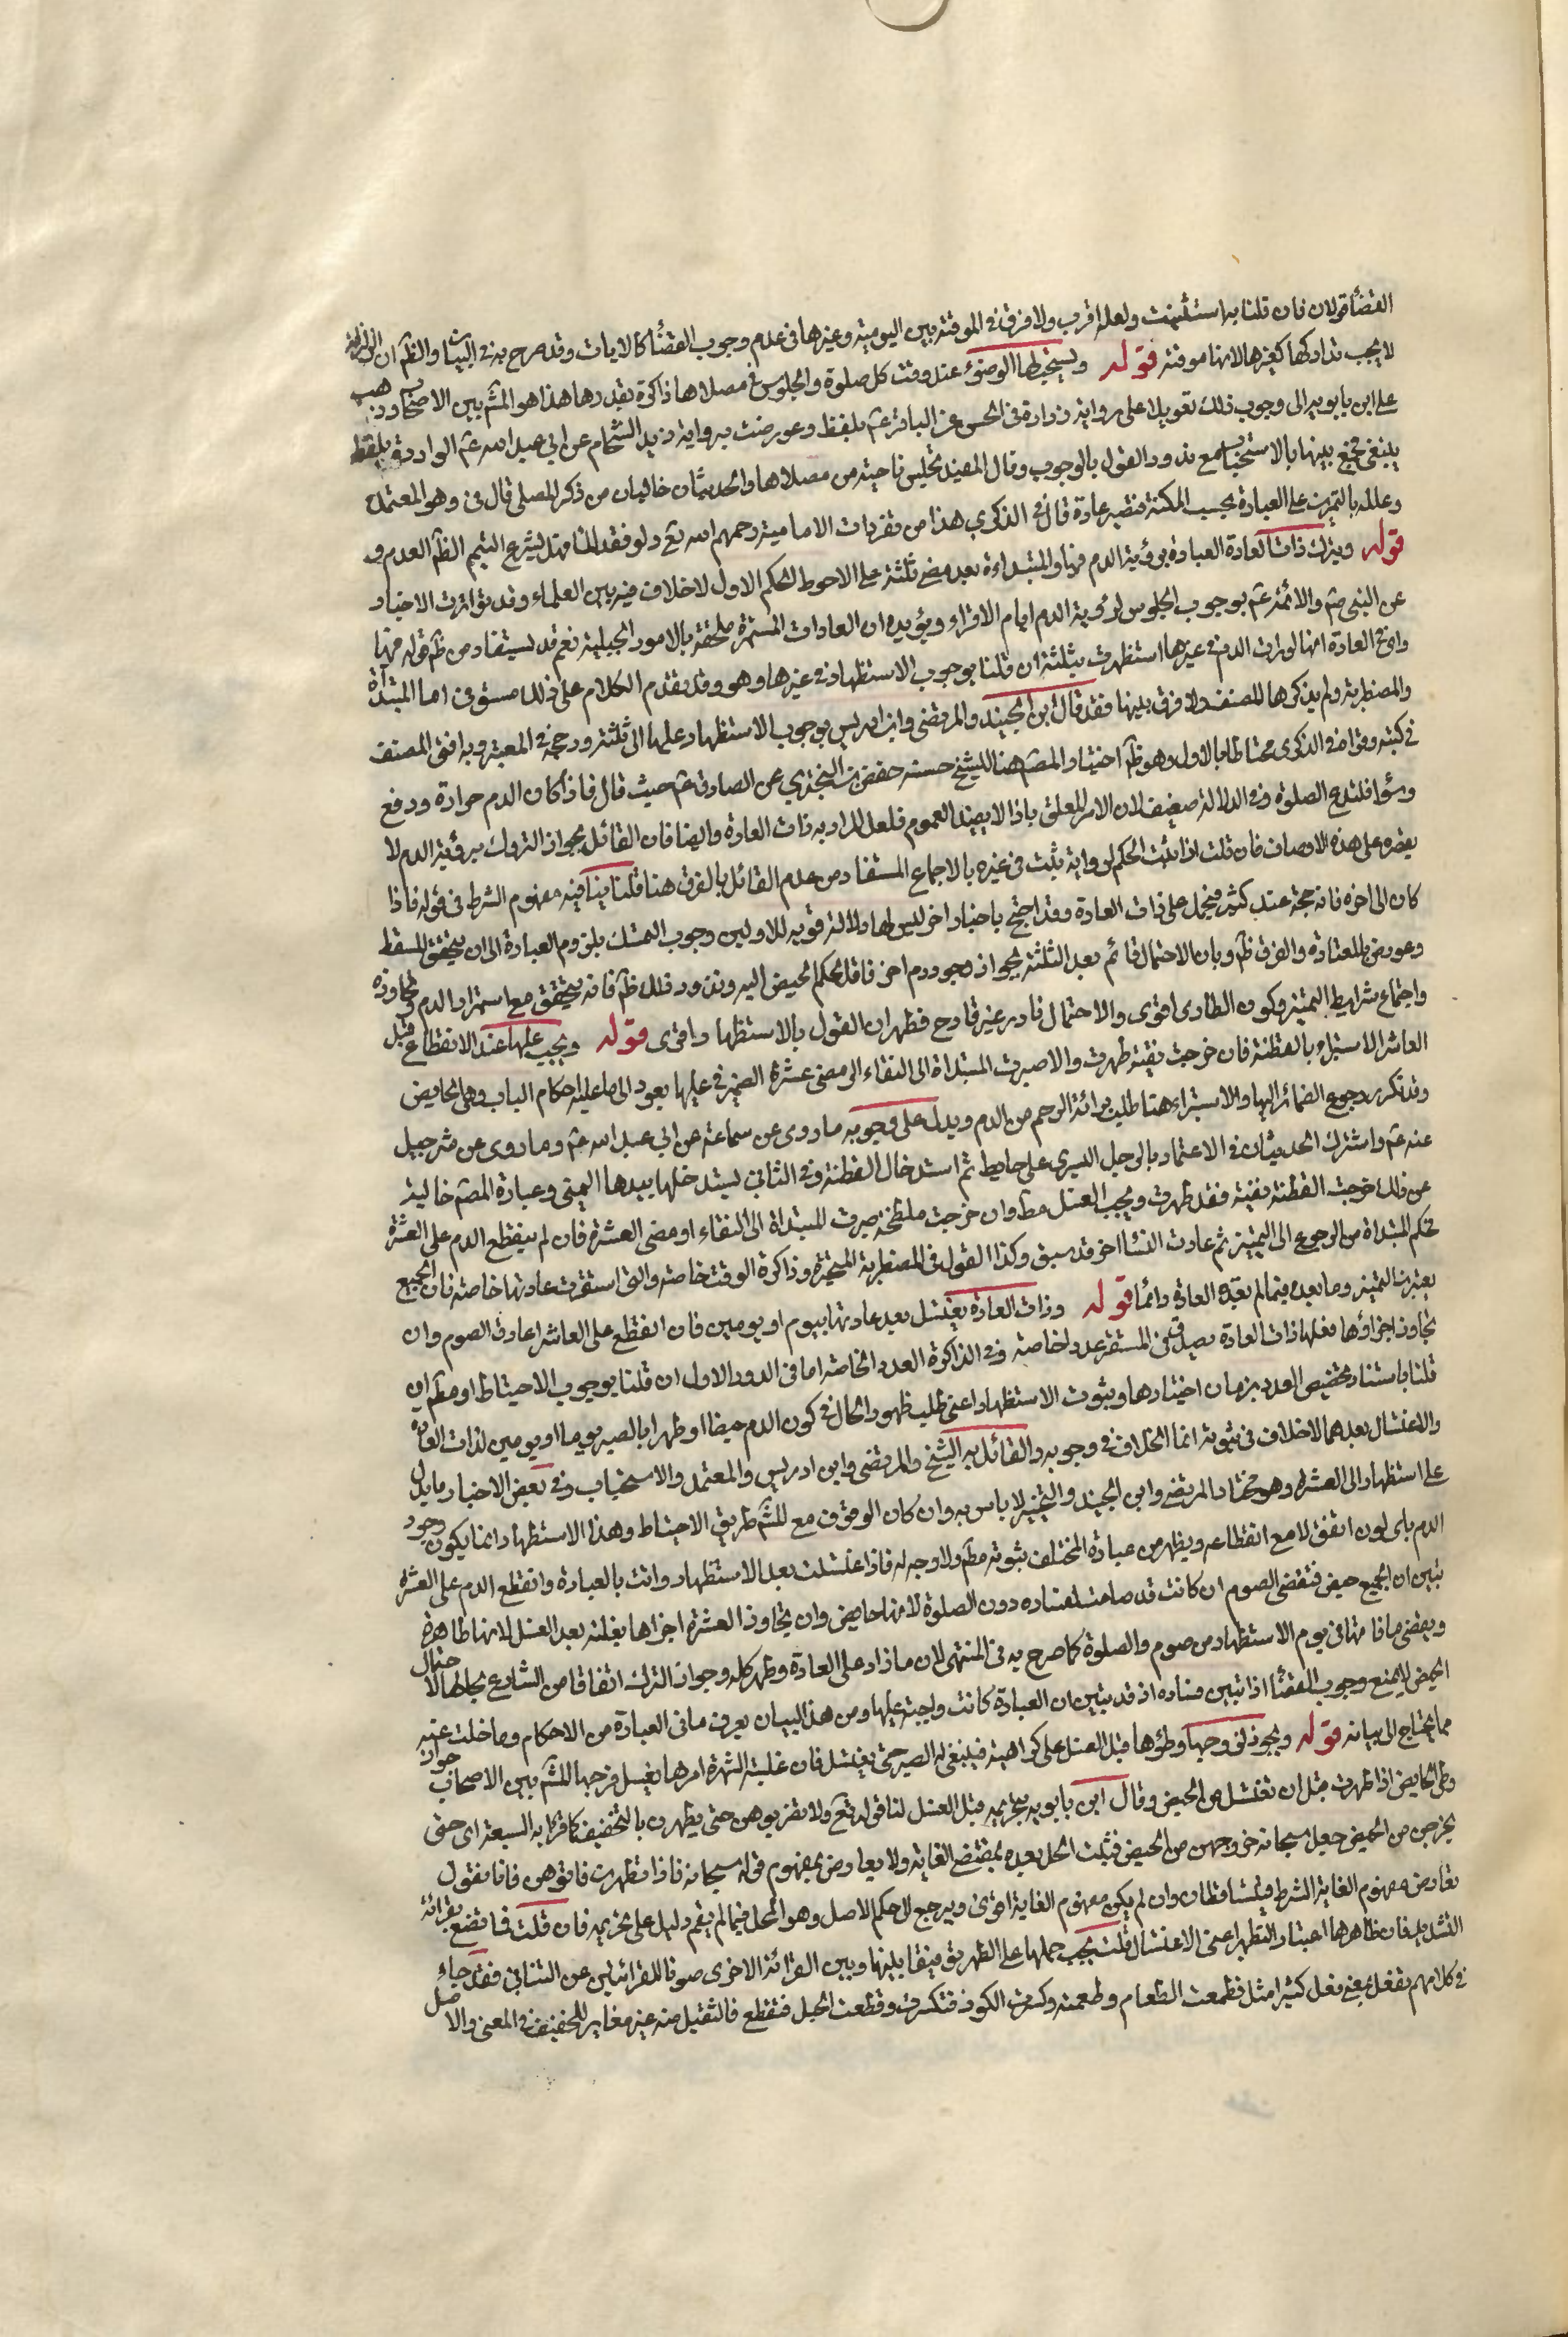 القضاء قولان فان قلنا به استثنيت ولعله اقرب ولا فرق في الموقتة بين اليومية وغيرها في عدم وجوب القضاء كالايات وقد صرح به في البيان والظ ان الزلزلة
لا يجب تداركها كغيرها لانها موقتة قوله ويستحب لها الوضوء عند وقت كل صلوة والجلوس في مصلاها ذاكرة بقدرها هذا هو المش بين الاصحاب وذهب
على ابن بابويه الى وجوب ذلك تعويلا على رواية زرارة في الحسن عن الباقر ع بلفظ وعورضت برواية زيد الشحام عن ابي عبد الله ع الواردة بلفظ
ينبغي فجمع بينهما بالاستحباب مع ندور القول بالوجوب وقال المفيد تجلس ناحية من مصلاها والحديثان خاليان من ذكر المصلى قال في وهو المعتمد
وعلله بالتمرين على العبادة بحسب المكنة فتصير عادة قال في الذكرى هذا من تفردات الامامية رحمهم الله تع ولو فقد الماء فهل يشرع التيمم الظ العدم و
قوله وتترك ذات العادة العبادة برؤية الدم فيها والمبتداءة بعد مضي ثلثة على الاحوط الحكم الاول لا خلاف فيه بين العلماء وقد تواترت الاخبار
عن النبي ص والائمة ع بوجوب الجلوس لرؤية الدم ايام الاقراء ويؤيده ان العادات المستمرة ملحقة بالامور الجبلية نعم قد يستفاد من ظ قوله فيها
واي في العادة انها لو رات الدم في غيرها استظهرت بثلثة ان قلنا بوجوب الاستظهار في غيرها وهو وقد تقدم الكلام على ذلك مستوفى اما المبتداة
والمضطربة ولم يذكرها المصنف ولا فرق بينهما فقد قال ابن الجنيد والمرتضى وابن ادريس بوجوب الاستظهار عليها الى ثلثة ورجحه في المعتبر وبه افتى المصنف
في كتبه وقواه في الذكرى محتاطا بالاول وهو ظ اختيار المص هنا للشيخ حسنة حفص بن البختري عن الصادق ع حيث قال فاذا كان الدم حرارة ودفع
وسواد فلتدع الصلوة وفي الدلالة ضعف لان الامر المعلق باذا لا يفيد العموم فلعل المراد به ذات العادة وايضا فان القائل بجواز التروك برؤية الدم لا
يقصره على هذه الاوصاف فان قلت اذا ثبت الحكم لرواية يثبت في غيره بالاجماع المستفاد من عدم القائل بالفرق هنا قلنا ينافيه مفهوم الشرط في قوله فاذا
كان الى اخره فانه حجة عند كثير فيحمل على ذات العادة وقد احتج باخبار اخر ليس لها دلالة قوية للاولين وجوب التمسك بلزوم العبادة الى ان يتحقق المسقط
وعورض بالمعتادة والفرق ظ وبان الاحتمال قائم بعد الثلثة لجواز وجود دم اخر فاقل الحكم الحيض اليه وندور ذلك ظ فانه يتحقق مع استمرار الدم وتجاوزه
واجتماع شرايط التميز وكون الطارى اقوى والاحتمال نادر غير قادح فظهر ان القول بالاستظهار اقوى قوله ويجب عليها عند الانقطاع قبل
العاشر الاستبراء بالقطنة فان خرجت نقية طهرت والا صبرت المبتداة الى النقاء الى مضي عشرة الضمير في عليها يعود الى ما عليه احكام الباب وهي الحايض
وقد تكرر رجوع الضمائر اليها والاستبراء هنا طلب برائة الرحم من الدم ويدل على وجوبه ما روى عن سماعة عن ابي عبد الله ع وما روى عن شرحبيل
عنه ع واشترك الحديثان في الاعتماد بالرجل اليسرى على حايط ثم استدخال القطنة وفي الثاني تستدخلها بيدها اليمنى وعبارة المص خالية
عن ذلك خرجت القطنة نقية فقد طهرت ويجب الغسل مط وان خرجت ملطخة صبرت المبتداة الى النقاء او مضي العشرة فان لم ينقطع الدم على العشرة
تحكم المبتداة من الرجوع الى التميز ثم عادت النساء اخر قد سبق وكذا القول في المضطربة المتحيرة وذاكرة الوقت خاصة والتي استقرت عادتها خاصة فان الجميع
يعتبرن التميز وما بعده فيما لم يفده العادة دائما قوله وذات العادة تغتسل بعد عادتها بيوم او يومين فان انقطع على العاشر اعادت الصوم وان
تجاوز اجزاؤها فعلها ذات العادة يصدق في المستقر عددا خاصة وفي الذاكرة العدد الخاصة اما في الدور الاول ان قلنا بوجوب الاحتياط او مط ان
قلنا باستناد تخصيص العدد بزمان اختيارها وثبوت الاستظهار اعنى طلب ظهور الحال في كون الدم حيضا او طهرا بالصبر يوما او يومين لذات العادة
والاغتسال بعدهما لا خلاف في ثبوته انما الخلاف في وجوبه والقائل به الشيخ والمرتضى وابن ادريس والمعتمد والاستحباب وفي بعض الاخبار ما يدل
على استظهار الى العشرة وهو مختار المرتضى وابن الجنيد والتخيير لا باس به وان كان الوقوف مع المش طريق الاحتياط وهذا الاستظهار انما يكون وجود
الدم باى لون اتفق لا مع انقطاعه ويظهر من عبارة المختلف ثبوته مط ولا وجه له فاذا غتسلت بعد الاستظهار واتت بالعبادة وانقطع الدم على العشرة
تبين ان الجميع حيض فتقضى الصوم ان كانت قد صامت لفساده دون الصلوة لانها حايض وان تجاوز العشرة اجزاها بغلته بعد الغسل لانها طاهرة
ويقضى ما فاتها في يوم الاستظهار من صوم والصلوة كما صرح به في المنتهى لان ما زاد على العادة وطهر كله وجواز الترك اتفاقا من الشارع بحالها لاحتمال
الحيض لا يمنع وجوب القضاء اذا تبين فساده اذ قد تبين ان العبادة كانت واجبة عليها ومن هذا البيان يعرف ما في العبارة من الاحكام وما خلت عنه
مما يحتاج الى بيانه قوله ويجوز لزوجها وطؤها قبل الغسل على كراهية فينبغي له الصبر حتى يغتسل فان غلبته الشهرة امرها بغسل فرجها المش بين الاصحاب جواز
وطى الحايض اذا طهرت قبل ان تغتسل من الحيض وقال ابن بابويه بتحريمه قبل الغسل لنا قوله تع ولا تقربوهن حتى يطهرن بالتخفيف كما قرا به السبعة اى حتى
يخرجن من الحيض جعل سبحانه خروجهن من الحيض فثبت الحل بعده بمقتضى الغاية ولا يعارض بمفهوم قوله سبحانه فاذا تطهرن فاتوهن فانا نقول
تعارض مفهوم الغاية الشرط فيتساقطان وان لم يكن مفهوم الغاية اقوى ويرجع الى حكم الاصل وهو الحل فيما لم يقم دليل على تحريمه فان قلت فاتصنع بقرائة
التشديد فان ظاهرها اعتبار التطهر اعنى الاغتسال قلت يجب حملها على الطهر توفيقا بينها وبين القرائة الاخرى صونا للقرائتين عن التنافي فقد جاء
في كلامهم تفعل بمعنى فعل كثيرا مثل قطمعت الطعام وطعمته وكسرت الكوز فتكسرت وقطعت الحبل فتقطع فالتثقيل منه غير مغاير للتخفيف في المعنى والاصل